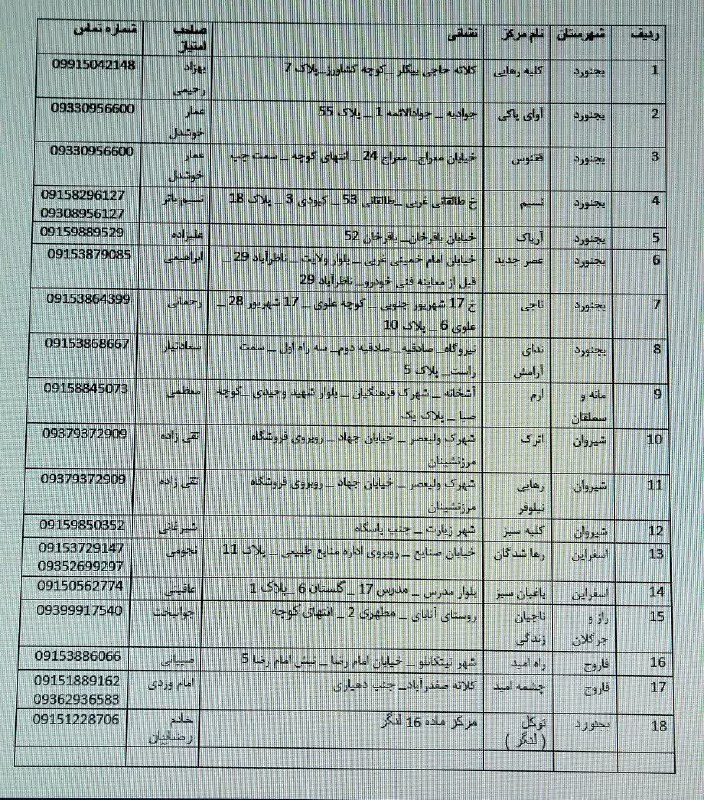 ردیف شهرستان نام مرکز نشانی صاحب امتیاز شماره تماس
1 بجنورد کلبه رهایی کلاته حاجی بیگلر _ کوچه کشاورز_پلاک 7 بهزاد رحیمی 09915042148
2 بجنورد آوای پاکی جوادیه _ جوادالائمه 1 _ پلاک 55 عمار خوشدل 09330956600
3 بجنورد ققنوس خیابان معراج_ معراج 24 _ انتهای کوچه _ سمت چپ عمار خوشدل 09330956600
4 بجنورد نسیم خ طالقانی غربی _طالقانی 53 _ کبودی 3 _ پلاک 18 نسیم 09158296127
09308956127
5 بجنورد آریاک خیابان باقرخان_ باقرخان 52 علیزاده 09159889529
6 بجنورد عصر جدید خیابان امام خمینی غربی _ بلوار ولایت _ ناظرآباد 29 _ ابراهیمی 09153879085
قبل از معاینه فنی خودرو_ ناظرآباد 29
7 بجنورد ناجی خ 17 شهریور جنوبی _ کوچه علوی _ 17 شهریور 28 _ رحمانی 09153864399
علوی 6 _ پلاک 10
8 بجنورد ندای آرامش نیروگاه_ صادقیه_ صادقیه دوم_ سه راه اول _ سمت 09153868667
راست_ پلاک 5
9 مانه و سملقان ارم آشخانه _ شهرک فرهنگیان _ بلوار شهید وحیدی _ کوچه معظمی 09158845073
صبا _ پلاک یک
10 شیروان اترک شهرک ولیعصر _ خیابان جهاد _ روبروی فروشگاه تقی زاده 09379372909
مرزنشینان
11 شیروان رهایی نیلوفر شهرک ولیعصر _ خیابان جهاد _ روبروی فروشگاه تقی زاده 09379372909
مرزنشینان
12 شیروان کلبه سبز شهر زیارت _ جنب پاسگاه شیرغانی 09159850352
13 اسفراین رها شدگان خیابان صنایع _ روبروی اداره منابع طبیعی _ پلاک 11 نجومی 09153729147
09352699297
14 اسفراین باغبان سبز بلوار مدرس _ مدرس 17 _ گلستان 6 _ پلاک 1 عاقبتی 09150562774
15 راز و جرگلان ناجیان زندگی روستای _ مطهری 2 _ انتهای کوچه جوانبخت 09399917540
16 فاروج راه امید شهر تیتکانلو _ خیابان امام رضا _ نبش امام رضا 5 09153886066
17 فاروج چشمه امید کلاته صفدرآباد_ جنب دهیاری امام وردی 09151889162
09362936583
18 بجنورد توکل ( لنگر ) مرکز ماده 16 لنگر خادم رضائیان 09151228706